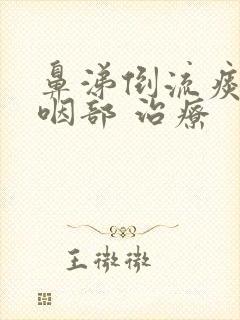 鼻涕倒流痰
咽部 治療
王微微